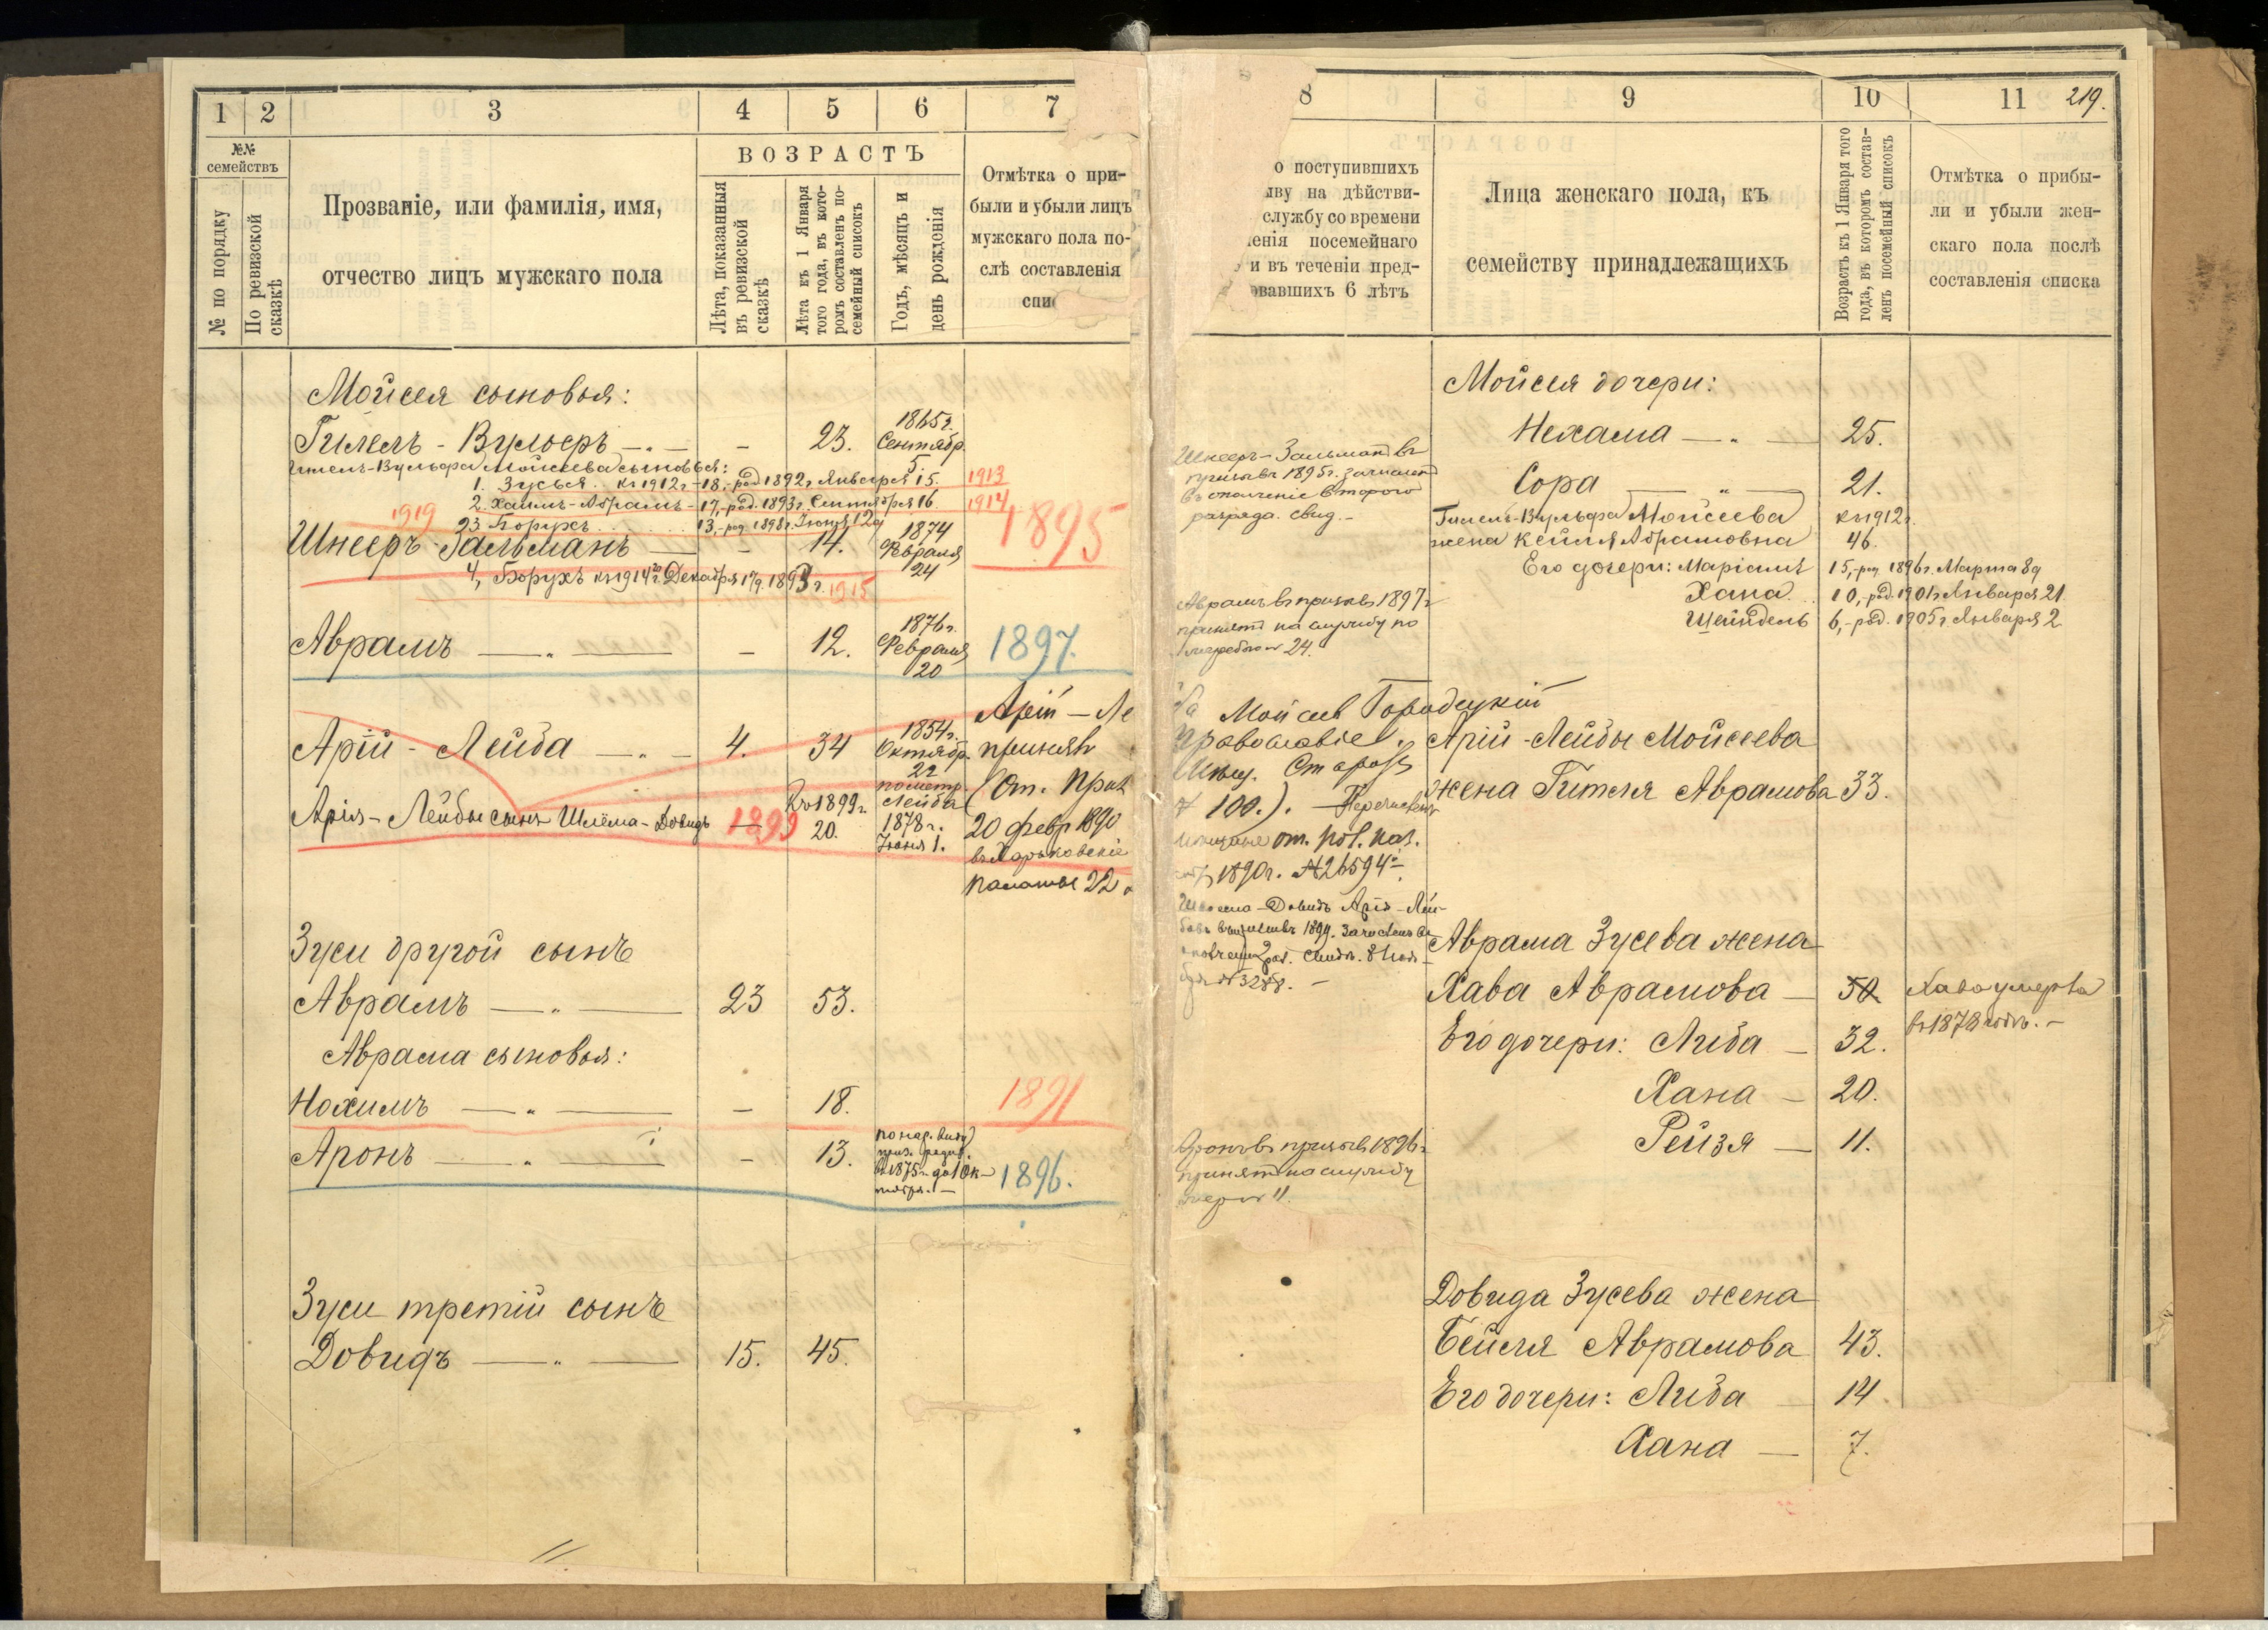 1 2 3 4 5 6 7
№№ семействъ
№ по порядку
По ревизской сказкѣ
Прозваніе, или фамилія, имя,
отчество лицъ мужскаго пола
ВОЗРАСТЪ
Лѣта, показанныя
въ ревизской
сказкѣ
Лѣта къ 1 Января
того года, въ кото-
ромъ составленъ по-
семейный списокъ
Годъ, мѣсяцъ и
день рожденія
Отмѣтка о при-
были и убыли лицъ
мужскаго пола по-
слѣ составленія
спи
Мойсея сыновья:
Гилель-Вульфъ — „ — – 23. 1865 г. Сентябр. 5
Гилель-Вульфа Мойсеева сыновья:
1. Зусья. къ 1912 г. – 18, – род 1892 г. Января 15. 1913
2. Хаимъ-Абрамъ – 17, – род. 1893 г. Сентября 16 1914
1919 23 Борухъ 13, – род. 1898 г. Іюня 12 д
Шнееръ Зальманъ — – 14. 1874 Февраля 24 1895
4, Борухъ къ 1914 г. Декабря 17 д. 1893 г. 1915
Аврамъ — „ — – 12. 1876 г. Февраля 20 1897.
Арій-Лейба — „ — 4. 34 1854 г. Октябр. 22
по метр. Лейба 1878 г. Іюня 1.
Арія-Лейбы сынъ Шлёма-Довидъ 1899 Къ 1899 г. 20.
Арій – Ле
принялъ
(От. Прав
20 февр 1890
въ Харьковскіе
Палаты 22
Зуси другой сынъ
Аврамъ — „ — 23 53.
Аврама сыновья:
Нохимъ — „ — – 18. 1891
Аронъ — „ — – 13. по нар. виду
въ 1875 г. до 1 Ок-
тября. – 1896.
Зуси третій сынъ
Довидъ — „ — 15. 45.
8 9 10 11 219.
о поступившихъ
ыву на дѣйстви-
службу со времени
енія посемейнаго
и въ теченіи пред-
овавшихъ 6 лѣтъ
Лица женскаго пола, къ
семейству принадлежащихъ
Возрастъ къ 1 Января того
года, въ которомъ состав-
ленъ посемейный списокъ
Отмѣтка о прибы-
ли и убыли жен-
скаго пола послѣ
составленія списка
Мойсея дочери:
Нехама — „ — 25.
Сора — „ — 21.
Гилель-Вульфа Мойсеева къ 1912 г.
жена Кейля Абрамовна 46.
Его дочери: Маріамъ 15, – род 1896 г. Марта 8 д
Хана 10, – род. 1901 г. Января 21
Шейндель 6, – род. 1905 г. Января 2
Шнееръ-Зальманъ въ
призывъ 1895 г. зачисленъ
въ ополченіе второго
разряда. свид. –
Аврамъ въ призывъ 1897 г
принятъ на службу по
жеребью 24.
Мойсей Городецкій
православіе.
100.). Перечисленъ
мѣщане от. Пол. Каз.
1890 г. № 26594.
Арій-Лейбы Мойсеева
жена Гителя Аврамова 33.
Шлёма-Довидъ Арія-Лей-
бовъ въ 1899. Зачисленъ въ
ополченіе 2 раз. Свид. 8 Нояб-
бря № 3288. –
Аврама Зусева жена
Хава Аврамова — 50 Хава умерла
въ 1878 годъ. –
Его дочери: Либа — 32.
Хана — 20.
Рейзя — 11.
Аронъ въ призывъ 1896 г
принятъ на службу
жереб 11.
Довида Зусева жена
Бейля Аврамова 43.
Его дочери: Либа — 14.
Хана — 7.